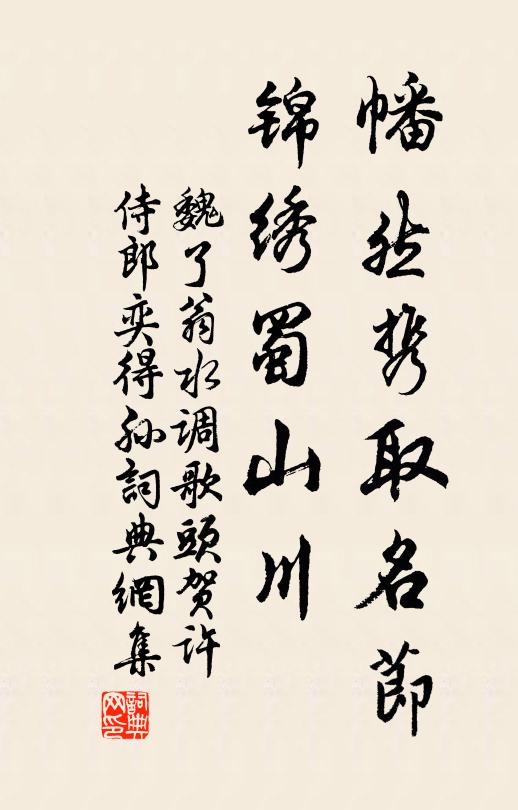 幡然携取名節
锦绣蜀山川
魏了翁水调歌頭贺许
侍郎奕得孙詞典網集
詞典网印